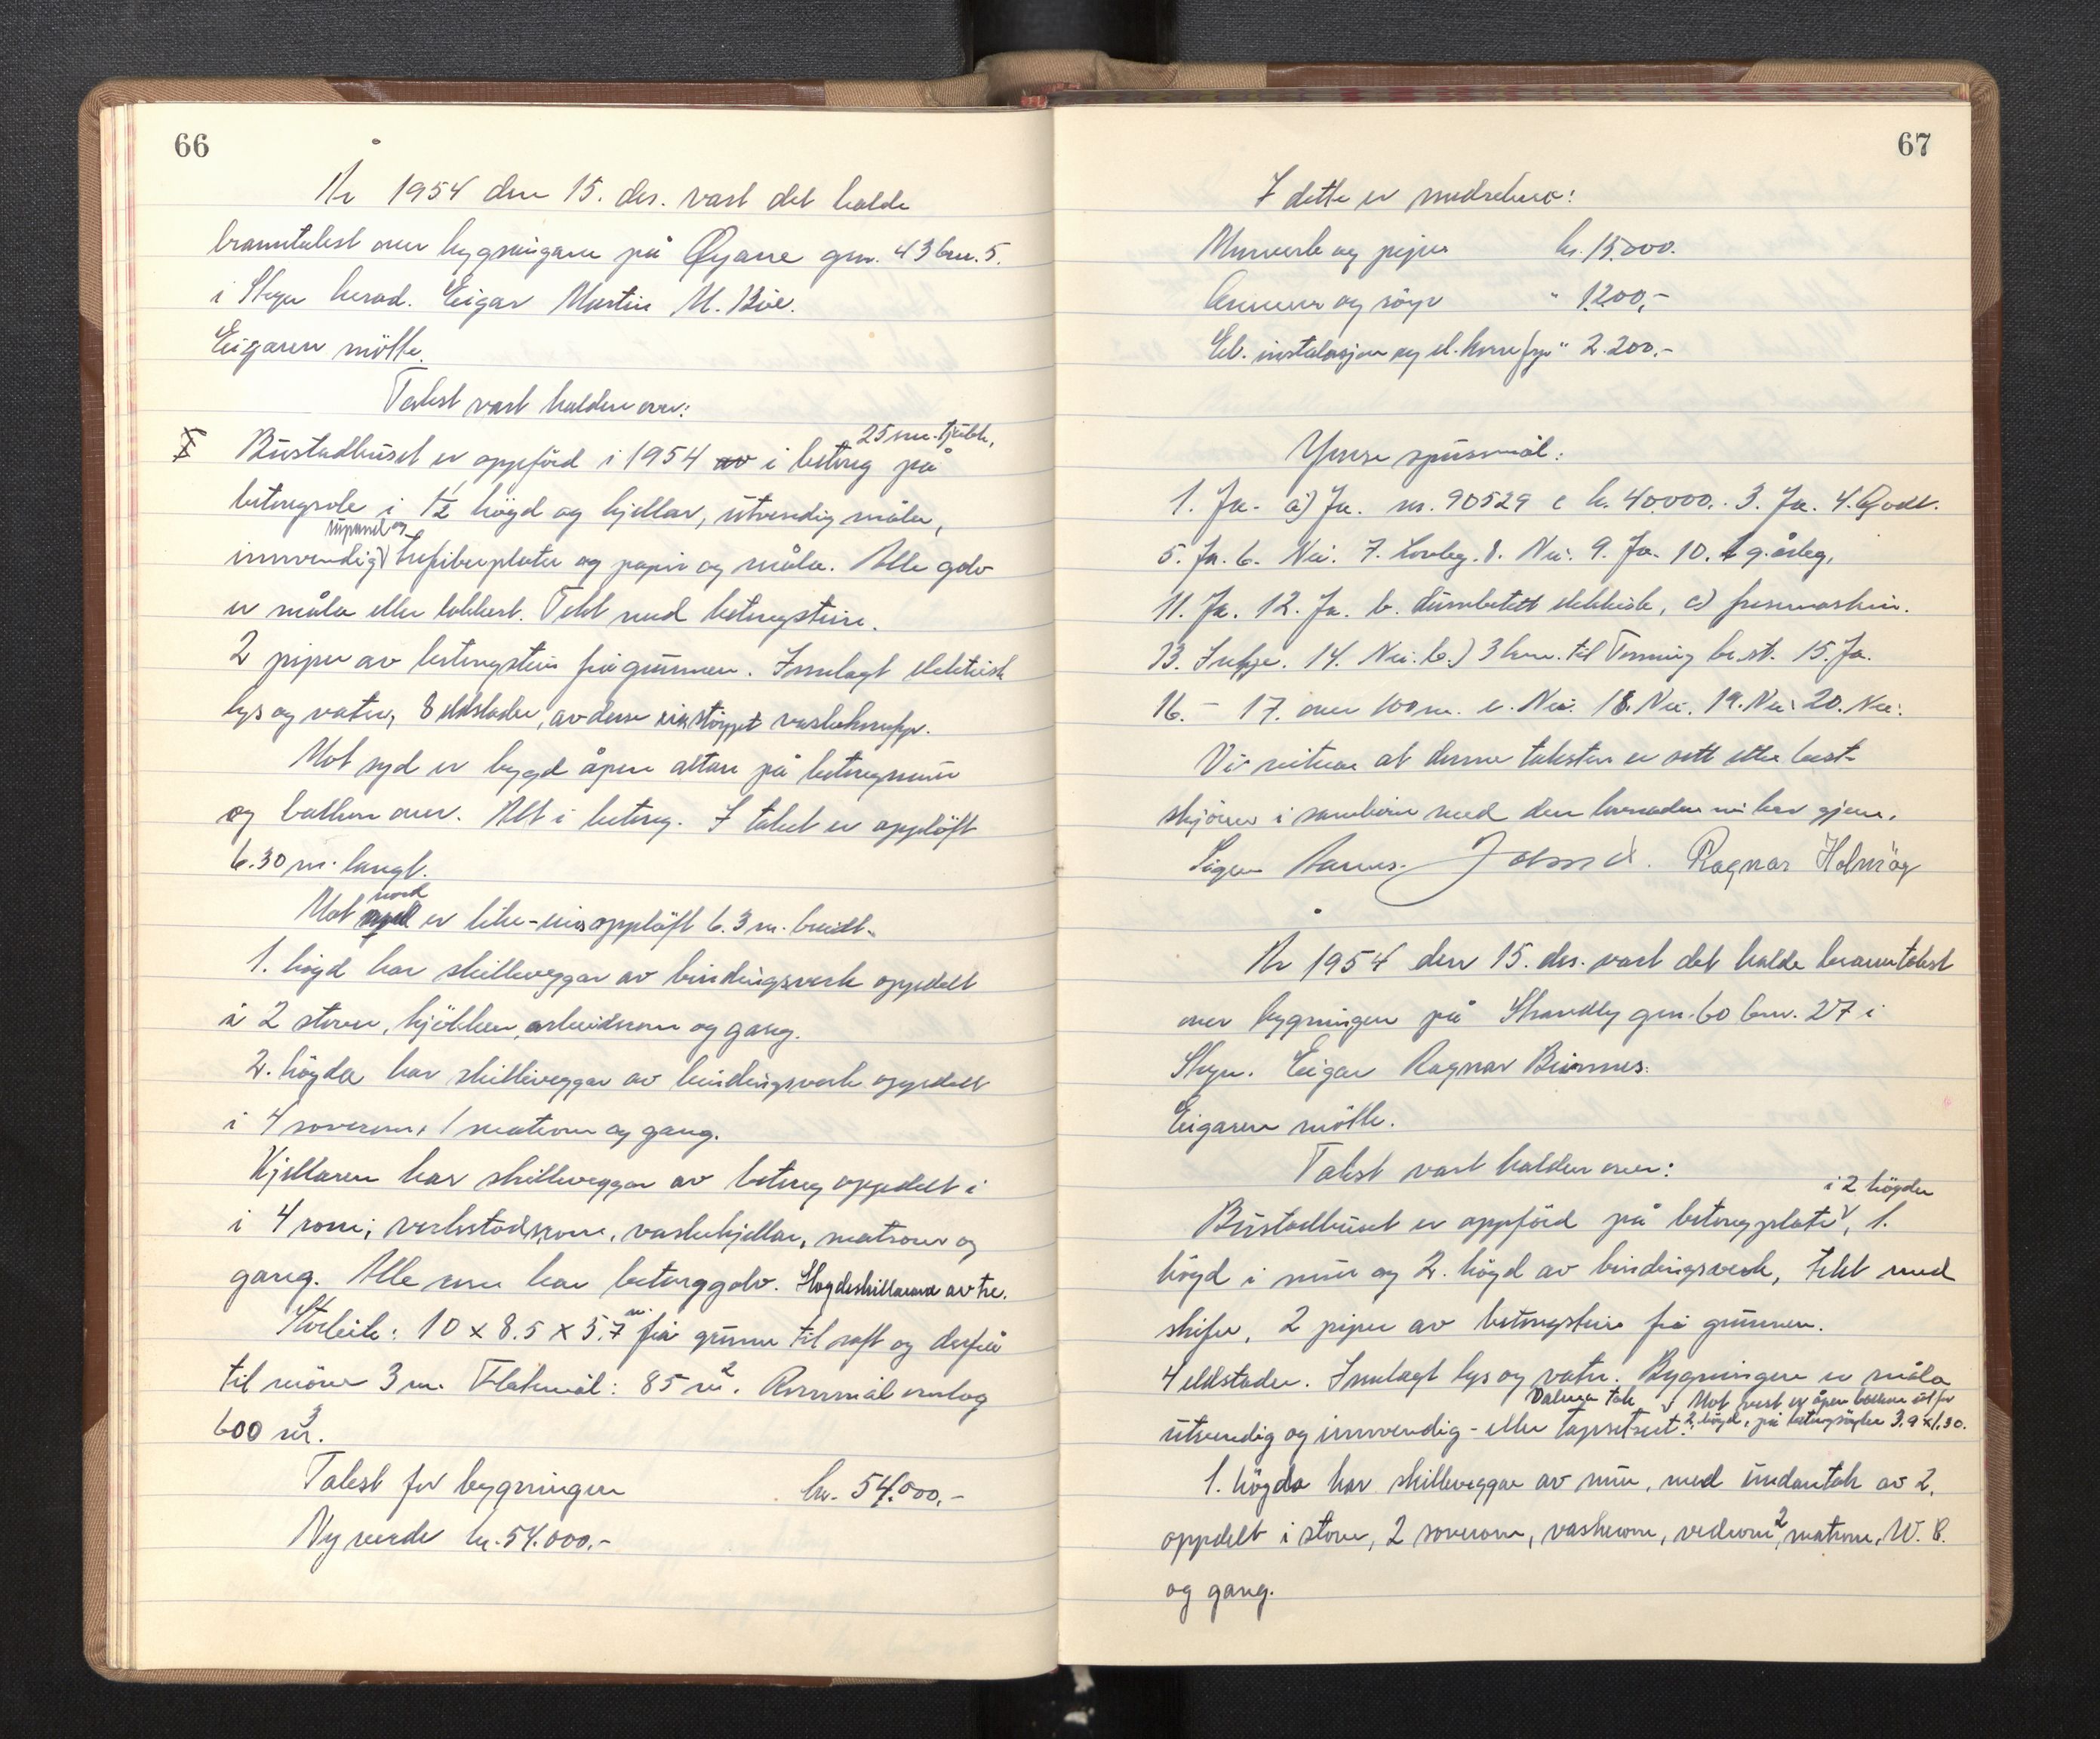 66
År 1954 den 15. des. vart det halde
branntakst over bygningane på Øyane gnr. 43 bnr. 5.
i Stryn herad. Eigar Martin M. Bøe.
Eigaren møtte.
Takst vart halden over:
I Bustadhuset er oppförd i 1954 av i betong 25 cm. tjukk, på
betongsole i 1 1/2 högd og kjellar, utvendig måla,
innvendig inpanel og trefiberplater og papir og måla. Alle golv
er måla eller lakkert. Tekt med betongstein.
2 piper av betongstein frå grunnen. Innlagt elektrisk
lys og vatn, 8 eldstader, av desse ein støypt vaskekrupp.
Mot syd er bygd åpen altan på betongmur
og balkon over. Alt i betong. I taket er opplöft
6.30 m. langt.
Mot syd nord er like-eins opplöft 6.3 m. breidt.
1. högd har skilleveggar av bindingsverk oppdelt
i 2 stover, kjökken, arbeidsrom og gang.
2. högda har skilleveggar av bindingsverk oppdelt
i 4 soverom, 1 matrom og gang.
Kjellaren har skilleveggar av betong oppdelt i
i 4 rom; verkstadsrom, vaskekjellar, matrom og
gang. Alle rom har betonggolv. Högdeskillarane av tre.
Storleik: 10 x 8.5 x 5.7 m. frå grunn til raft og derfrå
til möne 3 m. Flatemål: 85 m². Rommål omlag
600 m³.
Takst for bygningen kr. 54.000,-
Ny verde kr. 54.000,-
67
I dette er medrekna:
Murverk og piper kr. 15.000.
Komen og röyr " 1200,-
El. instalasjon og el. komfyr " 2.200,-
Ymse spursmål:
1. Ja. a) Ja. nr. 90529 c kr. 40.000. 3. Ja. 4. Godt.
5. Ja. 6. Nei. 7. Lovleg. 8. Nei. 9. Ja. 10. 1 g. årleg.
11. Ja. 12. Ja. b. elektrisk, c) fresemaskin.
13. Inkje. 14. Nei. b.) 3 km. til Tonning br. st. 15. Ja.
16. - 17. over 100 m. c. Nei. 18. Nei. 19. Nei. 20. Nei.
Vi vitnar at denne taksten er sett etter beste
skjönn i samhöve med den kunnaden vi har gjeve.
Ragnar Holmöy
År 1954 den 15. des. vart det halde branntakst
over bygningen på Strandby gnr. 60 bnr. 27 i
Stryn. Eigar Ragnar Bönnes.
Eigaren møtte.
Takst vart halden over:
Bustadhuset er oppförd på betongplate i 2 högder, 1.
högd i mur og 2. högd av bindingsverk, tekt med
skifer, 2 piper av betongstein frå grunnen.
4 eldstader. Innlagt lys og vatn. Bygningen er måla
utvendig og innvendig - eller tapsetsert. Valma tak. Mot vest er åpen balkon ut for
2. högd, på betongsöyler 3.9 x 1.30.
1. högda har skilleveggar av mur, med undantak av 2,
oppdelt i stove, 2 soverom, vaskerom, vedrom, 2 matrom, W. C.
og gang.